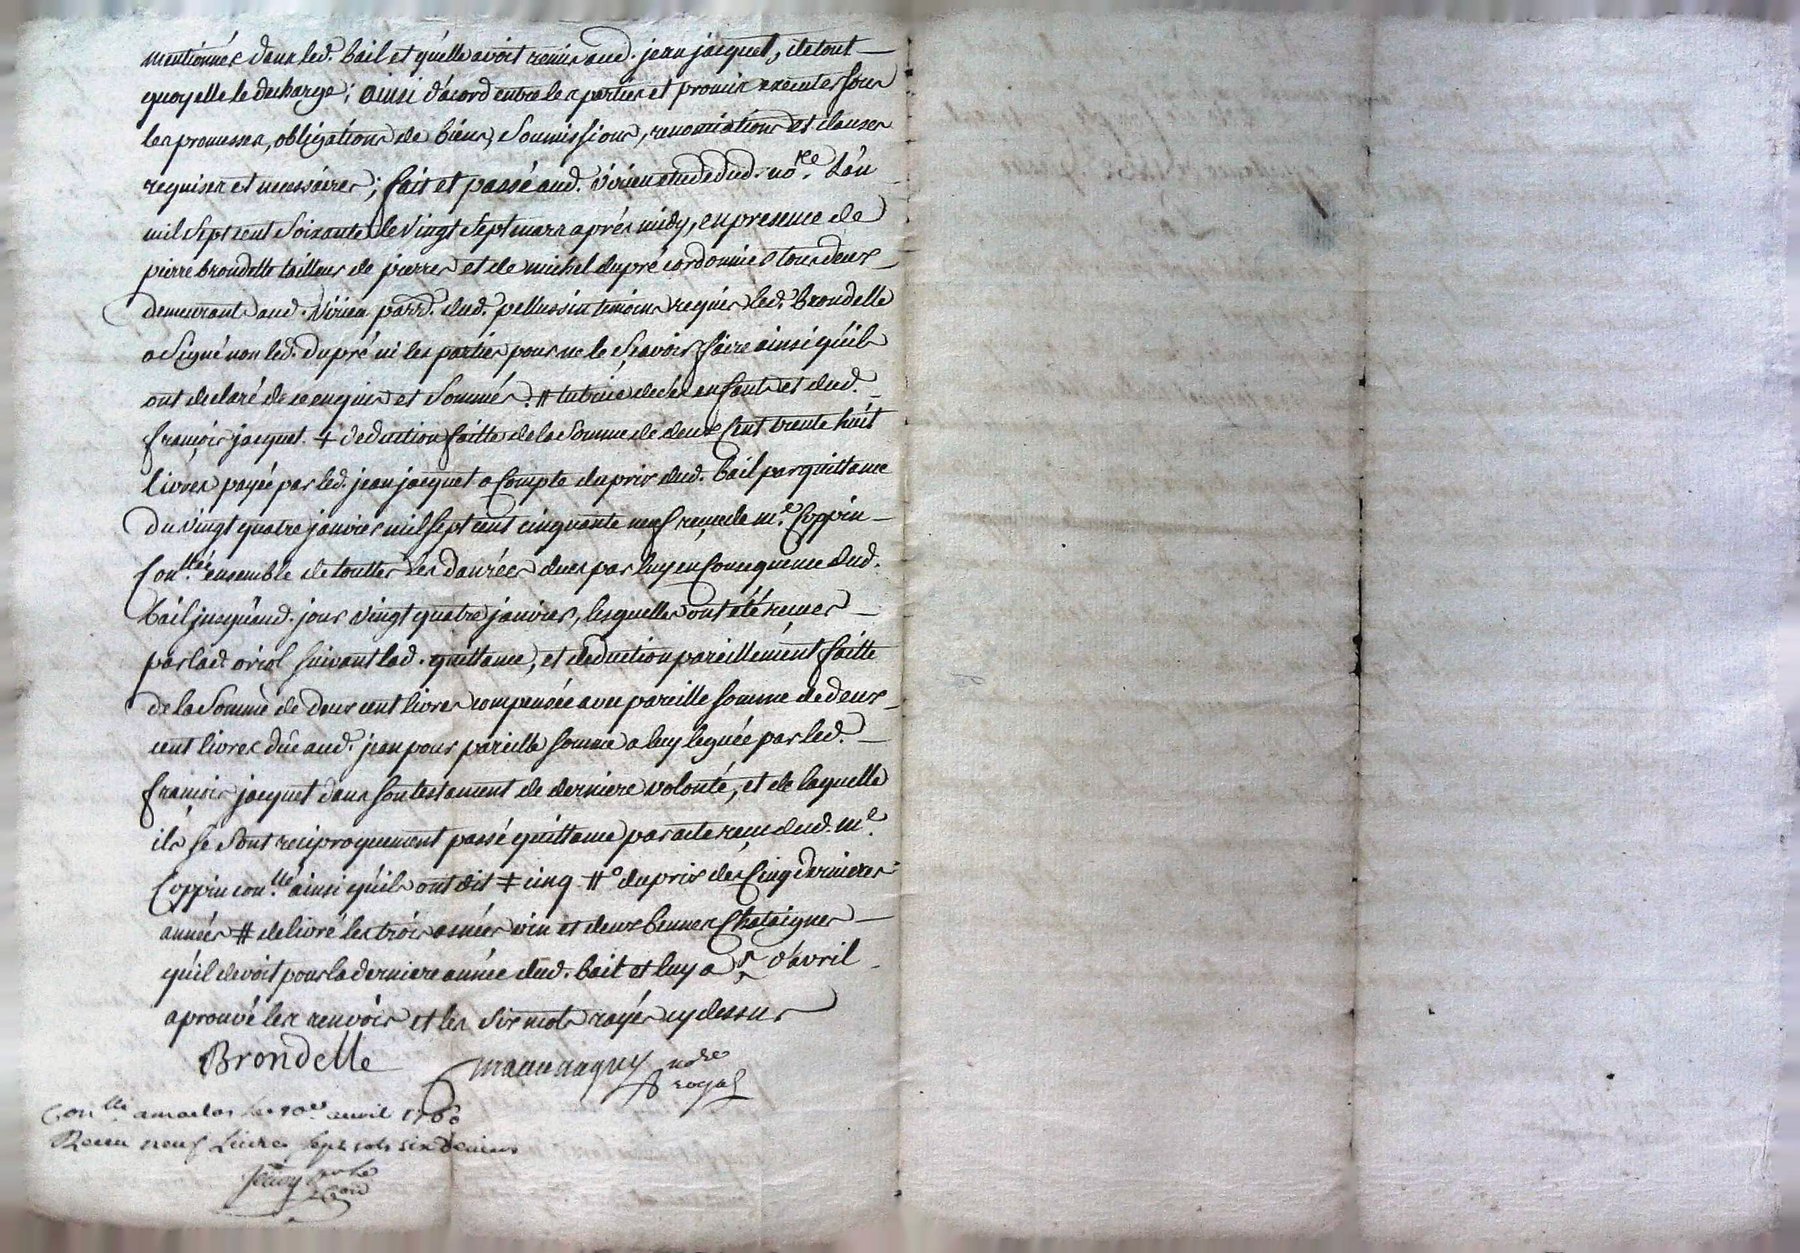 mentionnés dans led. bail et qu'elle avoit remis aud. jean jacquet, de tout
quoy elle le decharge; ainsi d'acord entre les parties et promis executer sous
les promesses, obligations de biens, soumissions, renonciations et clauses
requises et necessaires; fait et passé aud. Virieu etude dud. no.re L'an
mil sept cent soixante le vingt sept mars aprés midy, en presence de
pierre Brondelle tailleur de pierres et de michel dupré cordonnier tous deux
demeurant aud. Virieu parr. dud. pellussin temoins requis led. Brondelle
a signé non led. dupré ni les parties pour ne le sçavoir faire ainsi qu'ils
ont declaré de ce enquis et sommés. # tutrice de ses enfants et dud.
françois jacquet. ‡ deduction faitte de la somme de deux cent trente huit
livres payée par led. jean jacquet a compte du prix dud. bail par quittance
du vingt quatre janvier mil sept cent cinquante neuf reçue de m.e Coppin
Con.llé ensemble de touttes les danrées dues par luy en consequence dud.
bail jusqu'aud. jour vingt quatre janvier, lesquelles ont été reçues
par lad. oriol suivant lad. quittance, et deduction pareillement faitte
de la somme de deux cent livres compensée avec pareille somme de deux
cent livres düe aud. jean pour pareille somme a luy leguée par led.
françois jacquet dans son testament de derniere volonté, et de laquelle
ils se sont reciproquement passé quittance par acte recu dud. m.e
Coppin con.llé ainsi qu'ils ont dit ‡ cinq # du prix des cinq dernieres
années # delivré les trois asnées vin et deux bennes chataignes
qu'il devoit pour la derniere année dud. bail et luy a d'avril
aprouvé les renvois et les six mots rayés cy dessus
Brondelle
no.re
royal
Con.llé a le avril 1760
Receu neuf Livres sept sols six deniers